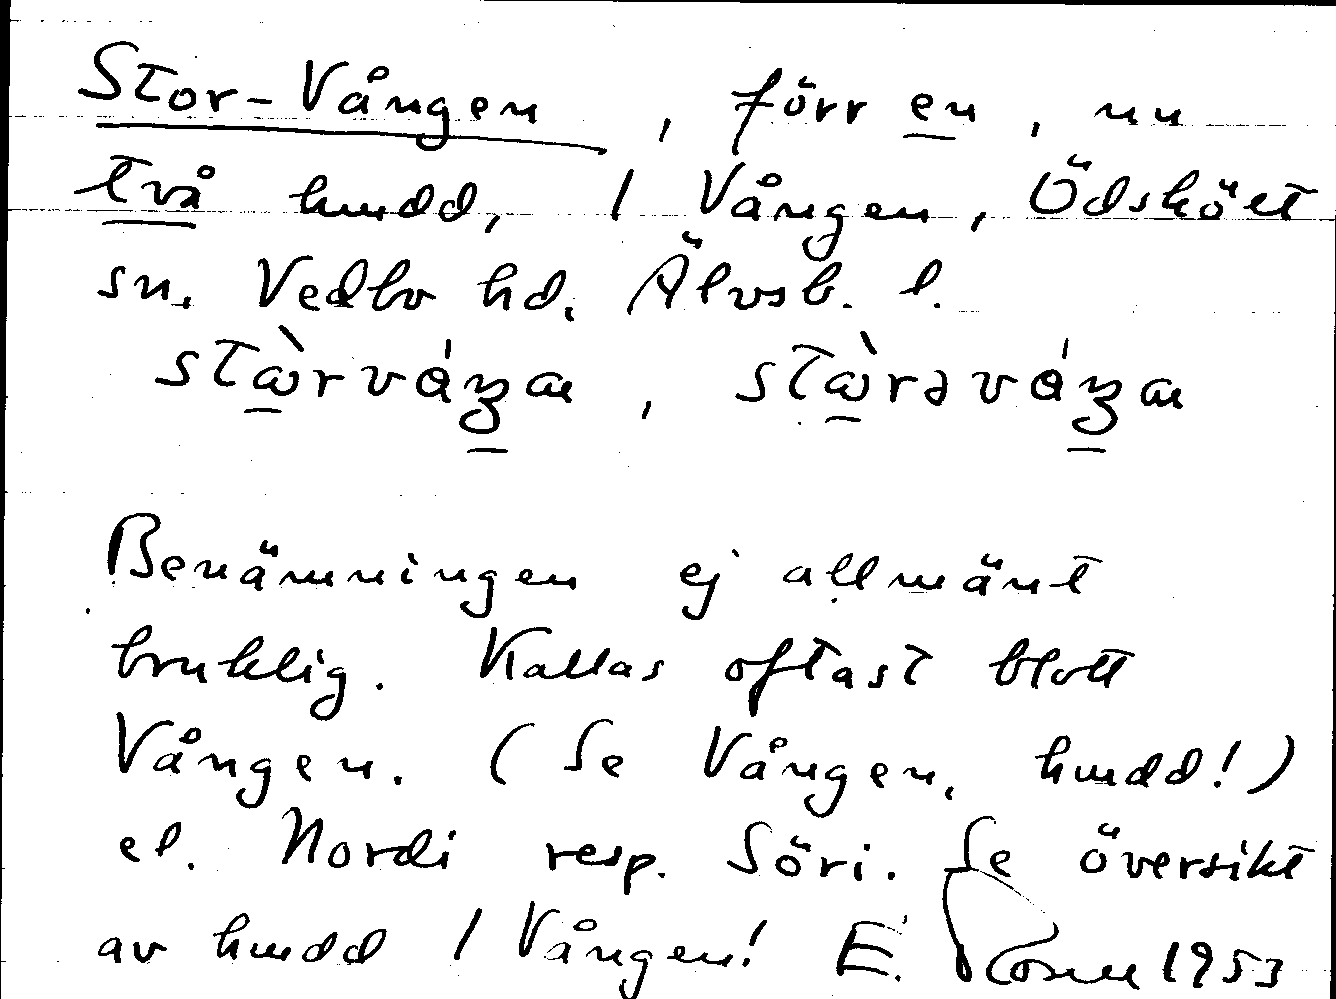 Stor-Vången, förr en, nu
två hmdd, / Vången, Ödsköt
sn, Vedbo hd. Älvsb. l.
Benämningen ej allmänt
bruklig. Kallas oftast blott
Vången. (Se Vången, hmdd!)
el. Nordi resp. Söri. Se översikt
av hmdd / Vången! E. 1953